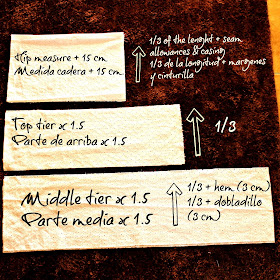 Hip measure + 15 cm
Medida cadera + 15 cm
1/3 of the lenght + seam
allowances & casing
1/3 de la longitud + margenes
y cinturilla
Top tier x 1.5
Parte de arriba x 1.5
1/3
Middle tier x 1.5
Parte media x 1.5
1/3 + hem (3 cm)
1/3 + dobladillo
(3 cm)